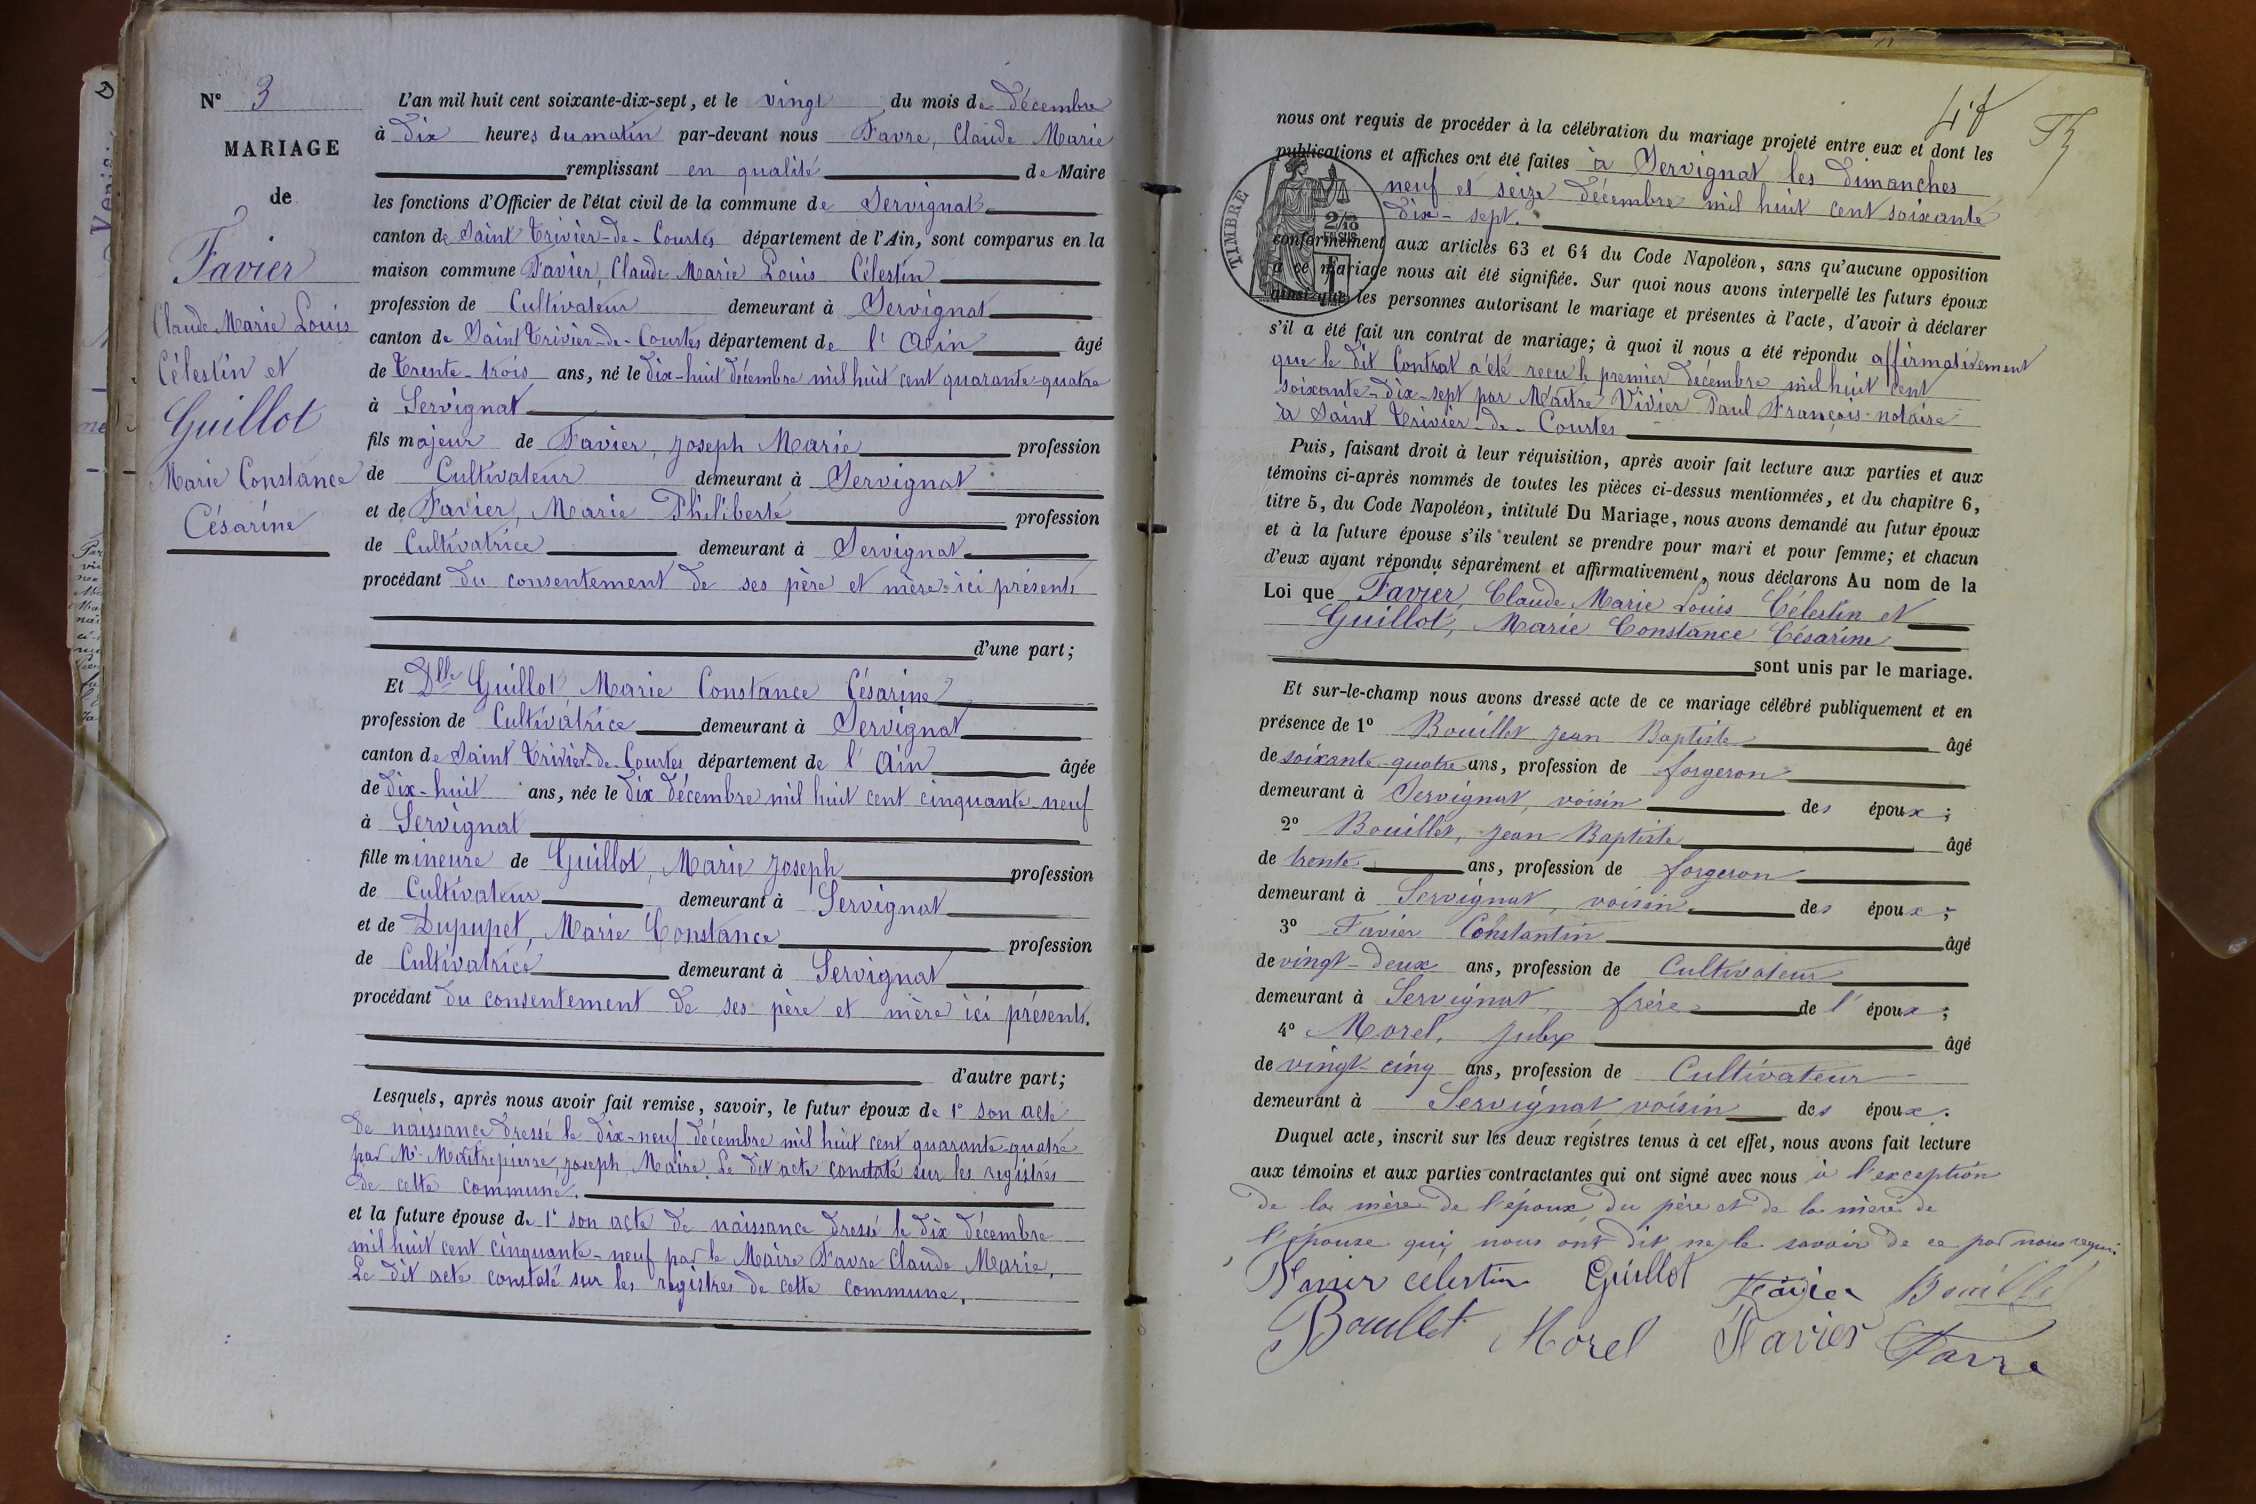 N° 3
MARIAGE
de
Favier
Claude Marie Louis
Célestin et
Guillot
Marie Constance
Césarine
L'an mil huit cent soixante-dix-sept, et le vingt du mois de Décembre
à Dix heures du matin par-devant nous Favre, Claude Marie
remplissant en qualité de Maire
les fonctions d'Officier de l'état civil de la commune de Servignat
canton de Saint Trivier-de-Courtes département de l'Ain, sont comparus en la
maison commune Favier, Claude Marie Louis Célestin
profession de Cultivateur demeurant à Servignat
canton de Saint Trivier-de-Courtes département de l'Ain âgé
de Trente-trois ans, né le dix-huit Décembre mil huit cent quarante-quatre
à Servignat
fils majeur de Favier, Joseph Marie profession
de Cultivateur demeurant à Servignat
et de Favier, Marie Philiberte profession
de Cultivatrice demeurant à Servignat
procédant du consentement de ses père et mère ici présents
d'une part;
Et Dlle Guillot Marie Constance Césarine
profession de Cultivatrice demeurant à Servignat
canton de Saint Trivier-de-Courtes département de l'Ain âgée
de Dix-huit ans, née le dix Décembre mil huit cent cinquante-neuf
à Servignat
fille mineure de Guillot, Marie Joseph profession
de Cultivateur demeurant à Servignat
et de Dupupet, Marie Constance profession
de Cultivatrice demeurant à Servignat
procédant du consentement de ses père et mère ici présents.
d'autre part;
Lesquels, après nous avoir fait remise, savoir, le futur époux de 1° son acte
de naissance dressé le dix-neuf décembre mil huit cent quarante-quatre
par Mr Maîtrepierre, Joseph Maire. Le dit acte constaté sur les registrés
de cette commune.
et la future épouse de 1° son acte de naissance dressé le dix Décembre
mil huit cent cinquante-neuf par le Maire Favre Claude Marie.
Le dit acte constaté sur les registres de cette commune.
nous ont requis de procéder à la célébration du mariage projeté entre eux et dont les
publications et affiches ont été faites à Servignat les dimanches
neuf et seize Décembre mil huit cent soixante
Dix-sept.
TIMBRE
2/10
EN SUS
conformément aux articles 63 et 64 du Code Napoléon, sans qu'aucune opposition
à ce mariage nous ait été signifiée. Sur quoi nous avons interpellé les futurs époux
ainsi que les personnes autorisant le mariage et présentes à l'acte, d'avoir à déclarer
s'il a été fait un contrat de mariage; à quoi il nous a été répondu affirmativement
que le dit Contrat a été reçu le premier Décembre mil huit cent
soixante-dix-sept par Maître Vivier Paul François notaire
à Saint Trivier-de-Courtes
Puis, faisant droit à leur réquisition, après avoir fait lecture aux parties et aux
témoins ci-après nommés de toutes les pièces ci-dessus mentionnées, et du chapitre 6,
titre 5, du Code Napoléon, intitulé Du Mariage, nous avons demandé au futur époux
et à la future épouse s'ils veulent se prendre pour mari et pour femme; et chacun
d'eux ayant répondu séparément et affirmativement, nous déclarons Au nom de la
Loi que Favier Claude Marie Louis Célestin et
Guillot, Marie Constance Césarine
sont unis par le mariage.
Et sur-le-champ nous avons dressé acte de ce mariage célébré publiquement et en
présence de 1° Bouillet Jean Baptiste âgé
de soixante-quatre ans, profession de forgeron
demeurant à Servignat, voisin des époux;
2° Bouillet, Jean Baptiste âgé
de trente ans, profession de forgeron
demeurant à Servignat, voisin des époux;
3° Favier Constantin âgé
de vingt-deux ans, profession de Cultivateur
demeurant à Servignat, frère de l'époux;
4° Morel, âgé
de vingt-cinq ans, profession de Cultivateur
demeurant à Servignat voisin des époux.
Duquel acte, inscrit sur les deux registres tenus à cet effet, nous avons fait lecture
aux témoins et aux parties contractantes qui ont signé avec nous à l'exception
de la mère de l'époux du père et de la mère de
l'épouse qui nous ont dit ne le savoir de ce par nous requis.
Favier célestin Guillot Favier Bouillet
Bouillet Morel Favier Favre